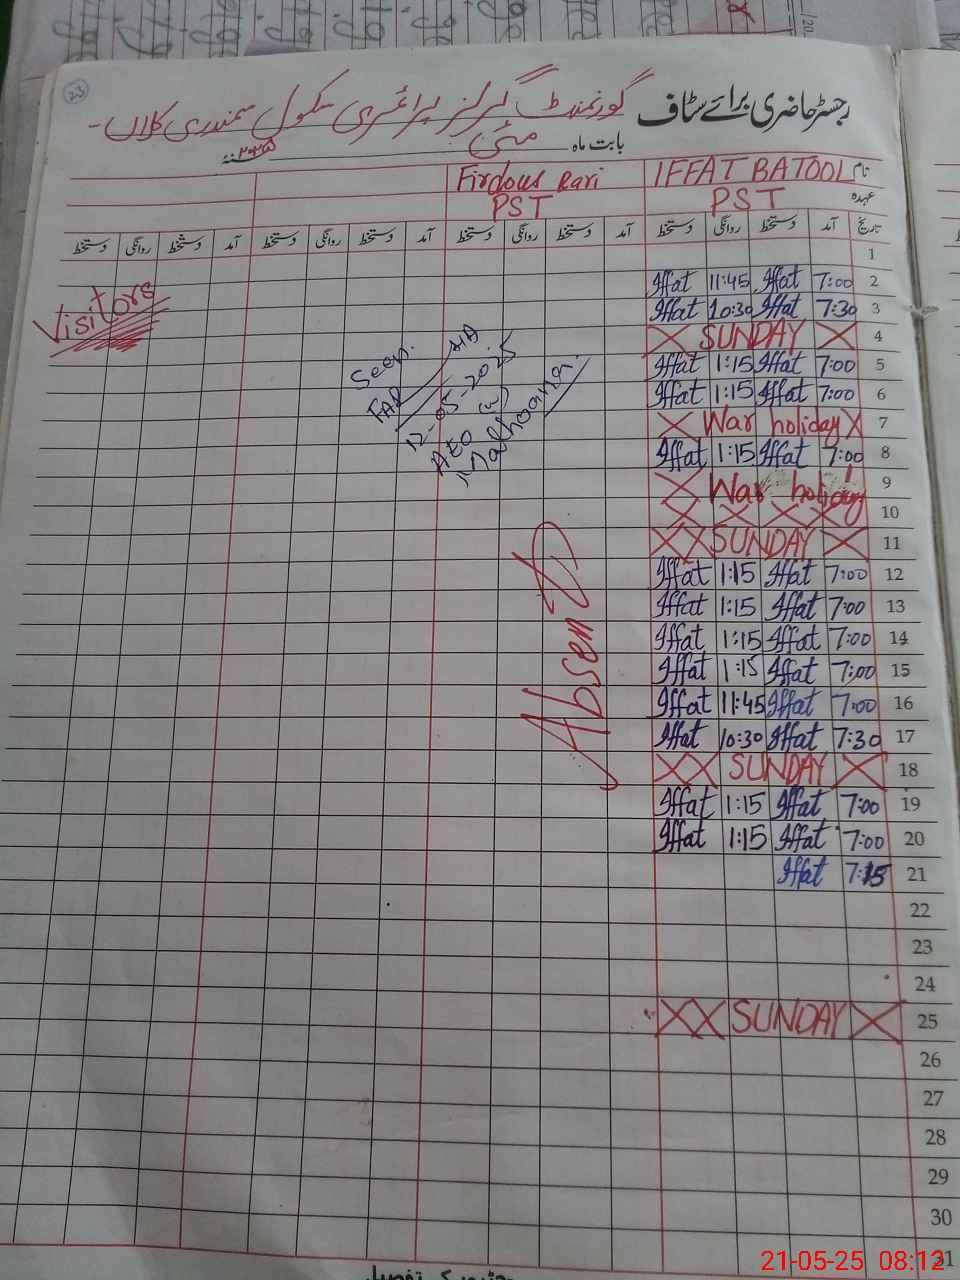 23
رجسٹر حاضری برائے سٹاف گورنمنٹ گرلز پرائمری سکول سمندری کلاں -
بابت ماہ مئی
نام IFFAT BATOOL Firdous
عہدہ PST PST
تاریخ آمد دستخط روانگی دستخط آمد دستخط روانگی دستخط آمد دستخط روانگی دستخط آمد دستخط روانگی دستخط
1
Iffat 11:45 Iffat 7:00 2
Iffat 10:30 Iffat 7:30 3
SUNDAY 4
Iffat 1:15 Iffat 7:00 5
Iffat 1:15 Iffat 7:00 6
War holiday 7
Iffat 1:15 Iffat 7:00 8
War holiday 9
10
SUNDAY 11
Iffat 1:15 Iffat 7:00 12
Iffat 1:15 Iffat 7:00 13
Iffat 1:15 Iffat 7:00 14
Iffat 1:15 Iffat 7:00 15
Iffat 11:45 Iffat 7:00 16
Iffat 10:30 Iffat 7:30 17
SUNDAY 18
Iffat 1:15 Iffat 7:00 19
Iffat 1:15 Iffat 7:00 20
Iffat 7:15 21
22
23
24
SUNDAY 25
26
27
28
29
30
31
Visitors
Seen.
12-05-2025
AEO (w)
Absent
کی تفصیل
21-05-25 08:12